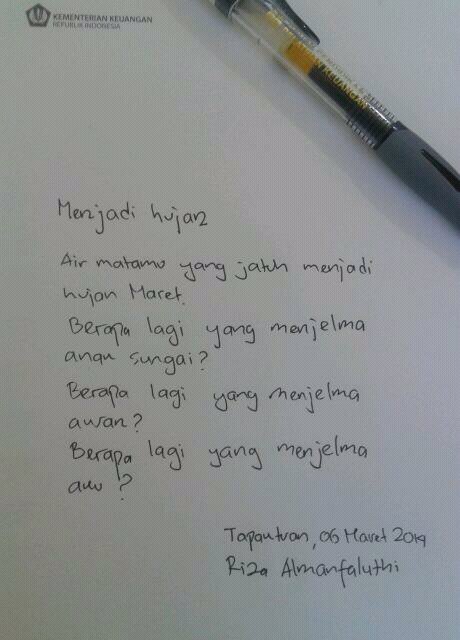 KEMENTERIAN KEUANGAN
REPUBLIK INDONESIA
KEMENTERIAN KEUANGAN
Menjadi hujan
Air matamu yang jatuh menjadi
hujan Maret.
Berapa lagi yang menjelma
anau sungai?
Berapa lagi yang menjelma
awan?
Berapa lagi yang menjelma
aku?
Tapaktuan, 06 Maret 2019
Riza Almanfaluthi